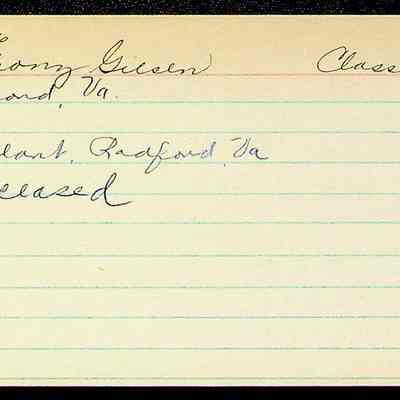 Gilsen Class
ord, Va.
lant, Radford, Va
ceased